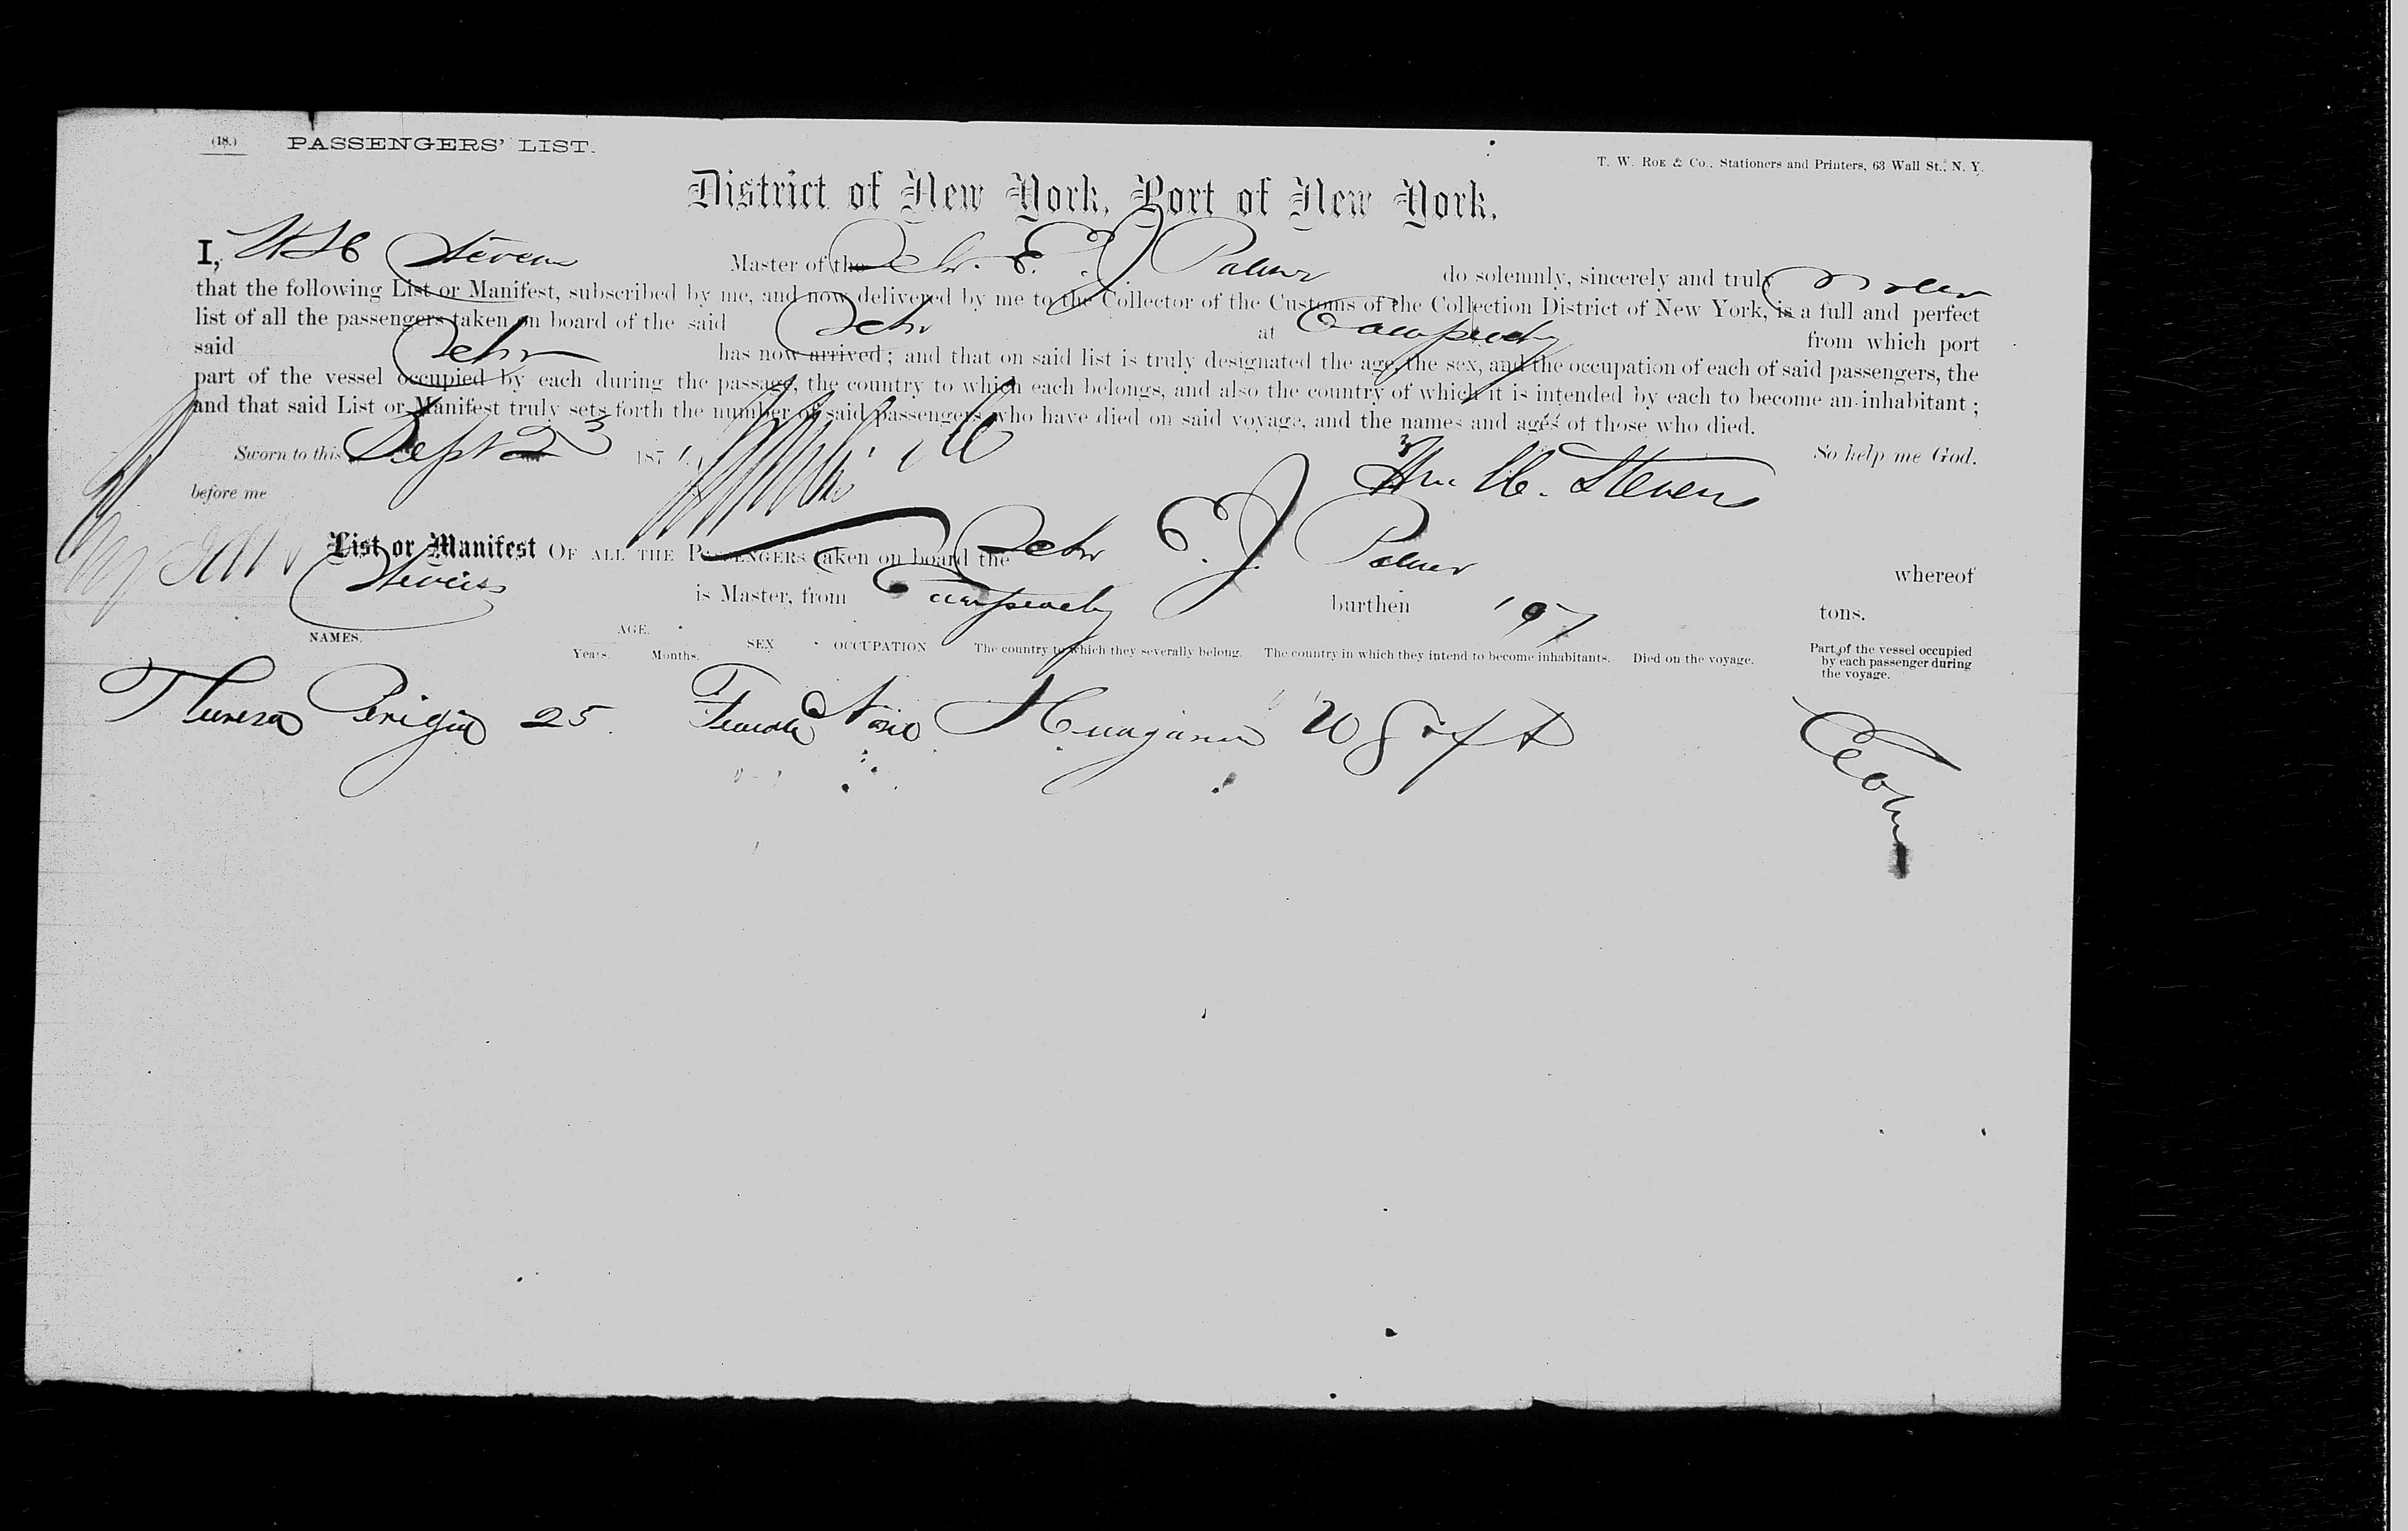 (18.) PASSENGERS' LIST.
T. W. ROE & Co., Stationers and Printers, 63 Wall St., N. Y.
District of New York, Port of New York.
I, Stevens Master of the Schr. E. J. Palmer do solemnly, sincerely and truly swear
that the following List or Manifest, subscribed by me, and now delivered by me to the Collector of the Customs of the Collection District of New York, is a full and perfect
list of all the passengers taken on board of the said Schr at Campeachy from which port
said Schr has now arrived; and that on said list is truly designated the age, the sex, and the occupation of each of said passengers, the
part of the vessel occupied by each during the passage, the country to which each belongs, and also the country of which it is intended by each to become an inhabitant;
and that said List or Manifest truly sets forth the number of said passengers who have died on said voyage, and the names and ages of those who died.
Sworn to this Sept 23 187 So help me God.
before me Wm H. Stevens
List or Manifest OF ALL THE PASSENGERS taken on board the Schr E. J. Palmer whereof
Stevens is Master, from Campeachy burthen 197 tons.
NAMES. AGE. Years. Months. SEX OCCUPATION The country to which they severally belong. The country in which they intend to become inhabitants. Died on the voyage. Part of the vessel occupied by each passenger during the voyage.
25 Female